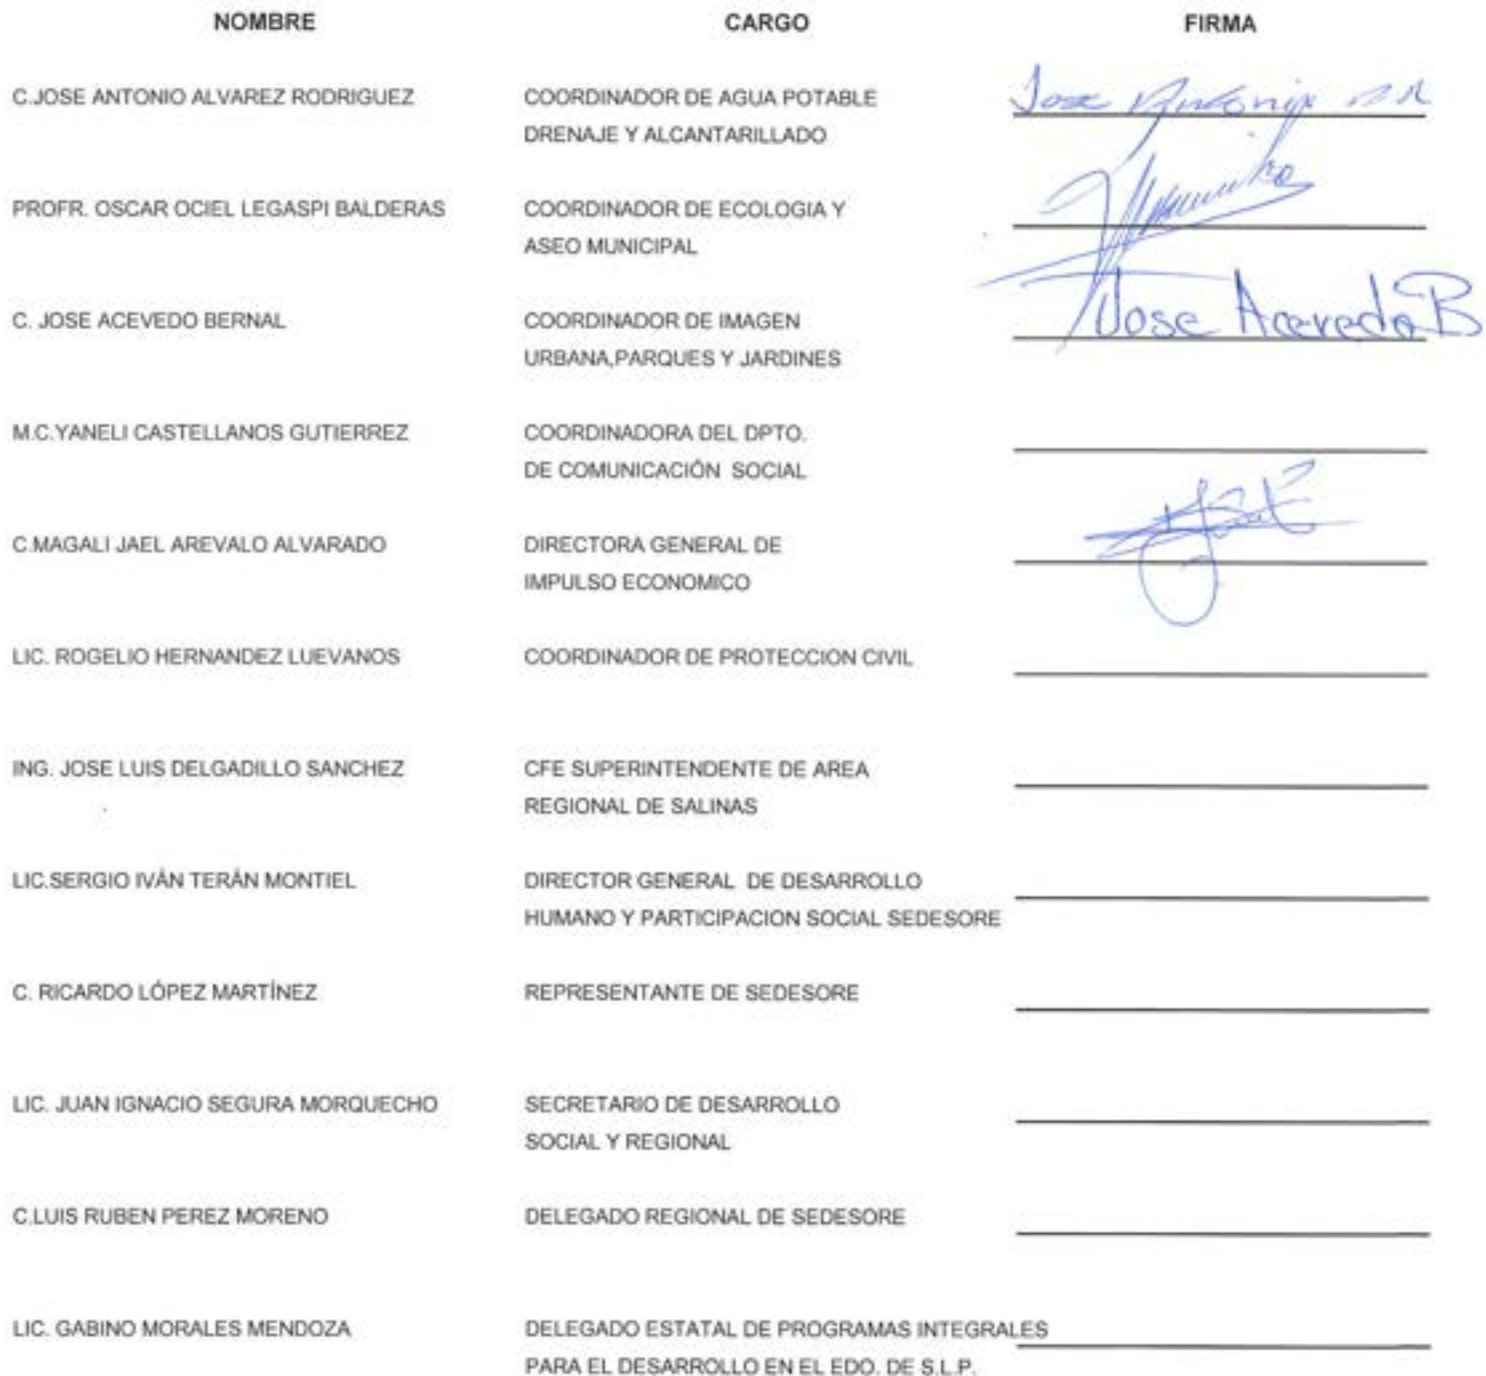 NOMBRE CARGO FIRMA
C.JOSE ANTONIO ALVAREZ RODRIGUEZ COORDINADOR DE AGUA POTABLE Jose Antonio
DRENAJE Y ALCANTARILLADO
PROFR. OSCAR OCIEL LEGASPI BALDERAS COORDINADOR DE ECOLOGIA Y
ASEO MUNICIPAL
C. JOSE ACEVEDO BERNAL COORDINADOR DE IMAGEN Jose Acevedo B
URBANA,PARQUES Y JARDINES
M.C.YANELI CASTELLANOS GUTIERREZ COORDINADORA DEL DPTO.
DE COMUNICACIÓN SOCIAL
C.MAGALI JAEL AREVALO ALVARADO DIRECTORA GENERAL DE
IMPULSO ECONOMICO
LIC. ROGELIO HERNANDEZ LUEVANOS COORDINADOR DE PROTECCION CIVIL
ING. JOSE LUIS DELGADILLO SANCHEZ CFE SUPERINTENDENTE DE AREA
REGIONAL DE SALINAS
LIC.SERGIO IVÁN TERÁN MONTIEL DIRECTOR GENERAL DE DESARROLLO
HUMANO Y PARTICIPACION SOCIAL SEDESORE
C. RICARDO LÓPEZ MARTÍNEZ REPRESENTANTE DE SEDESORE
LIC. JUAN IGNACIO SEGURA MORQUECHO SECRETARIO DE DESARROLLO
SOCIAL Y REGIONAL
C.LUIS RUBEN PEREZ MORENO DELEGADO REGIONAL DE SEDESORE
LIC. GABINO MORALES MENDOZA DELEGADO ESTATAL DE PROGRAMAS INTEGRALES
PARA EL DESARROLLO EN EL EDO. DE S.L.P.